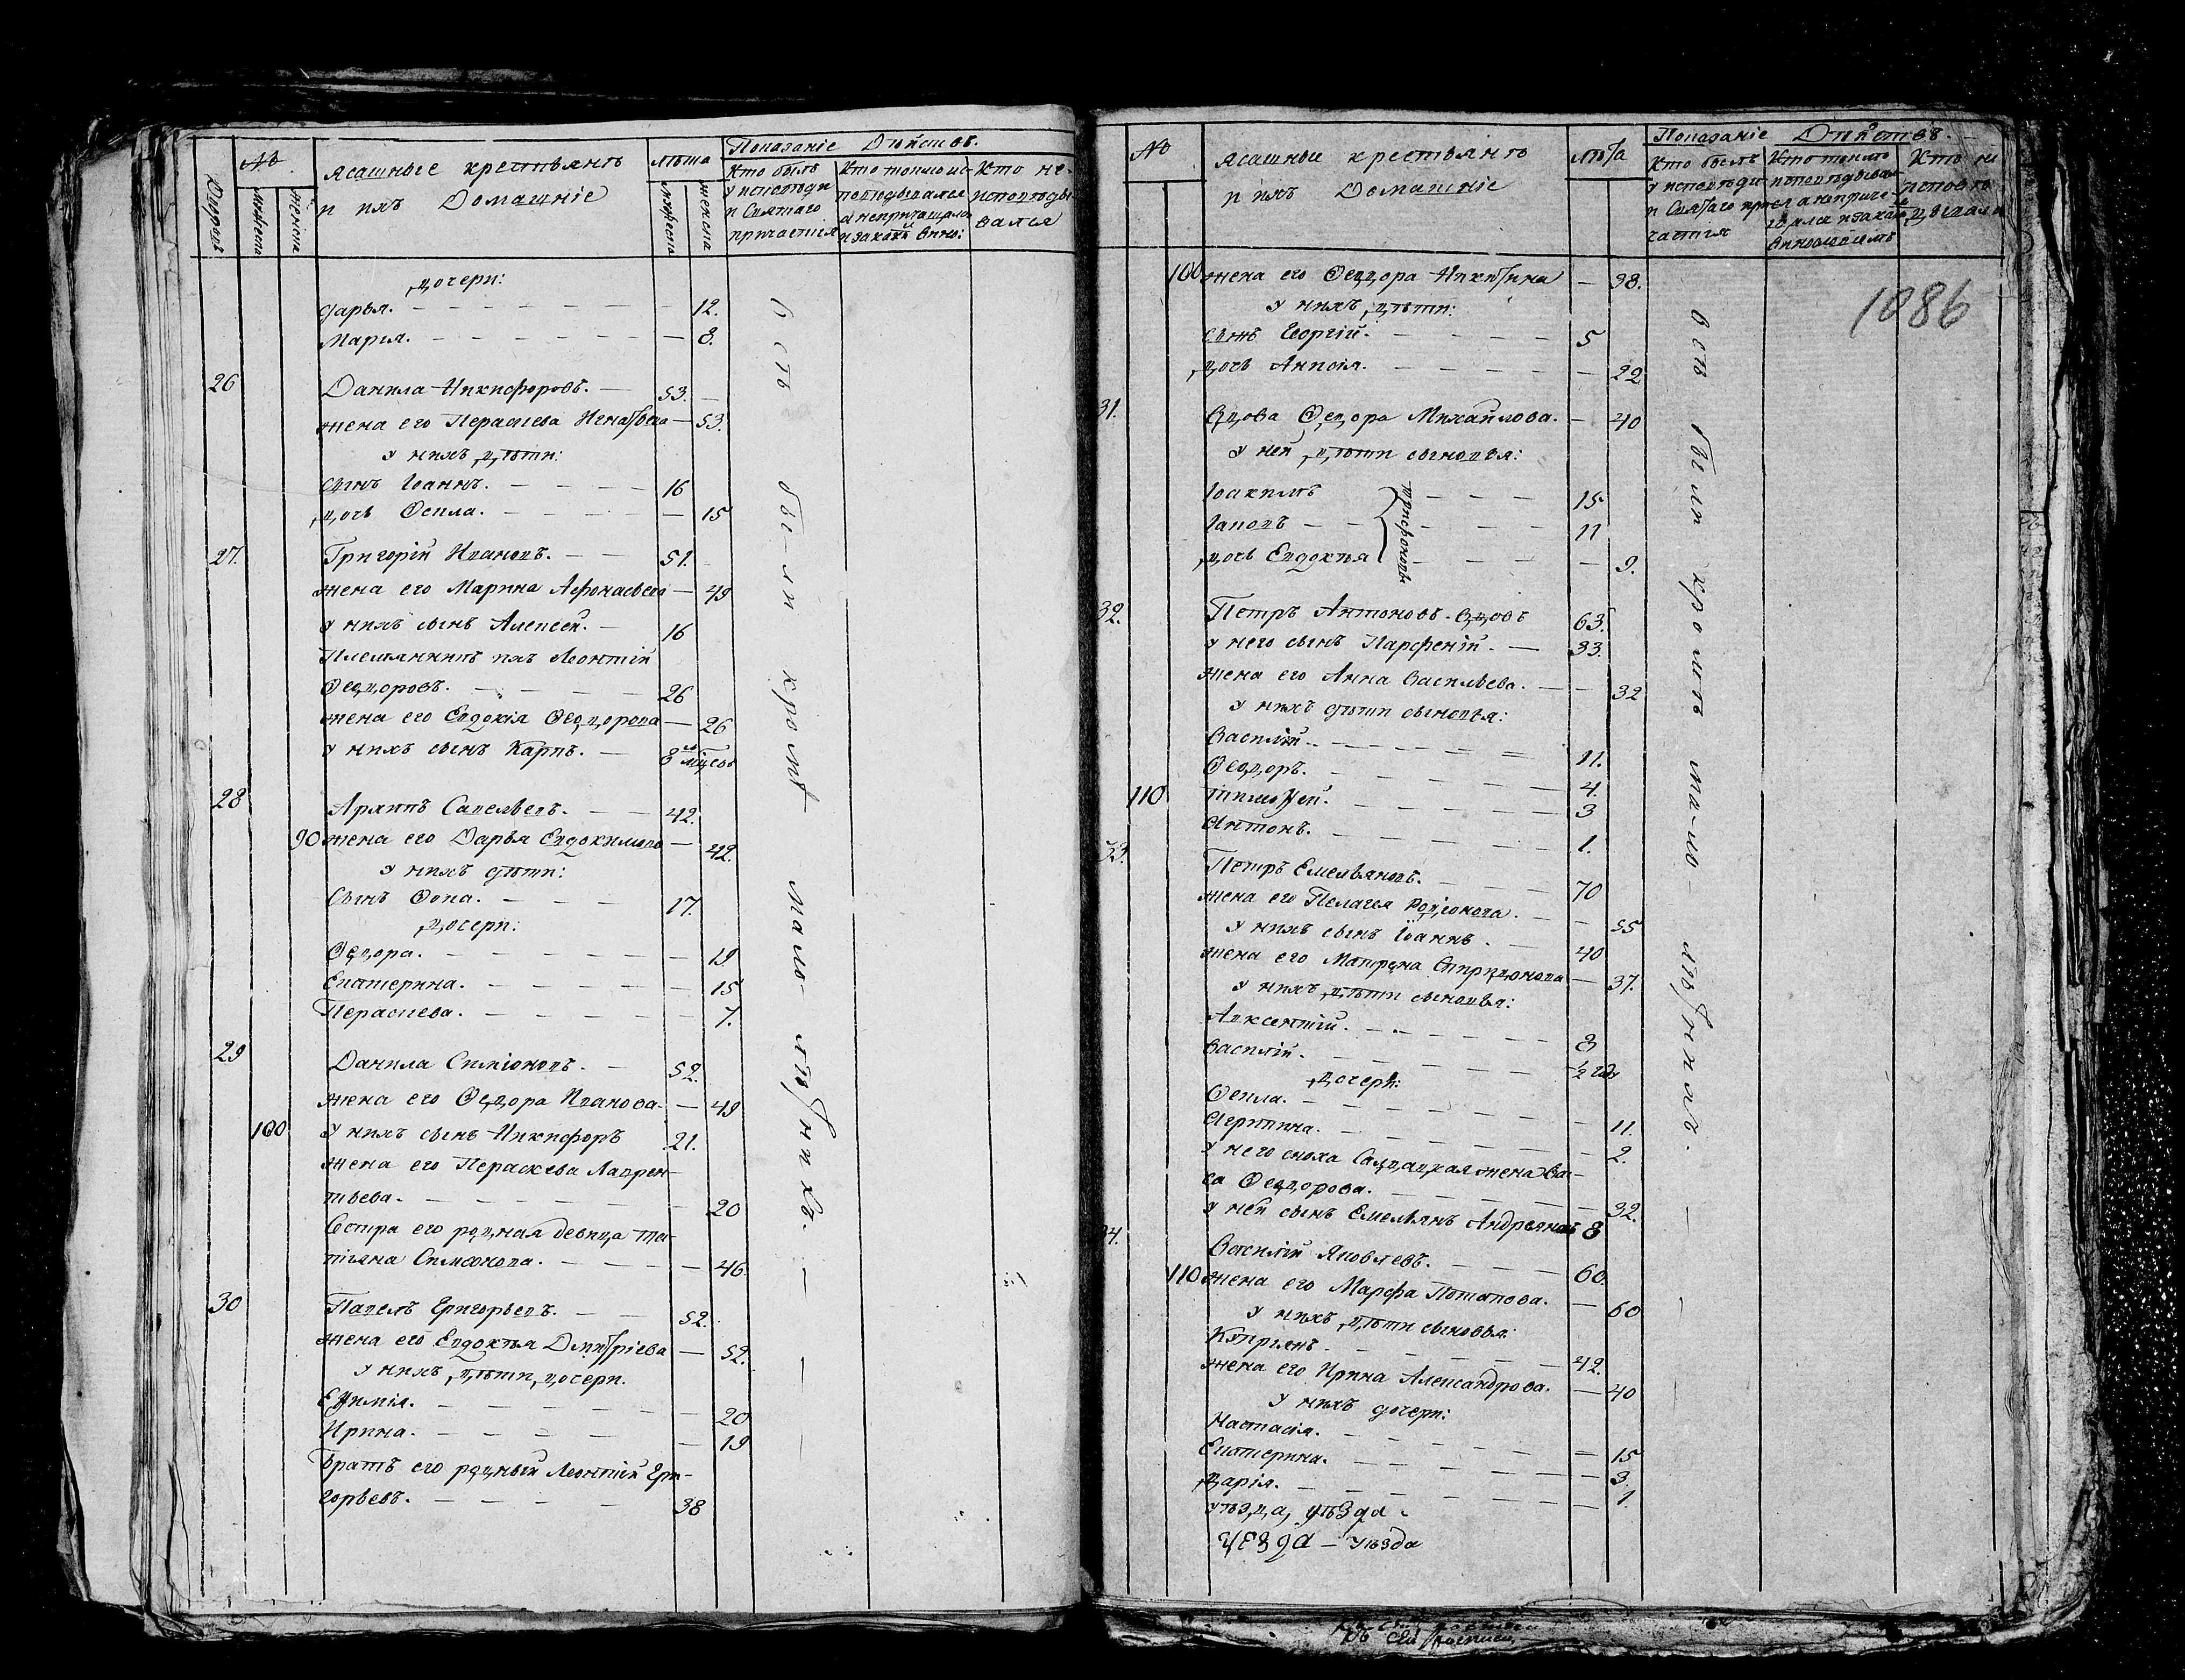 Дворовъ
№
мужеска
женска
Ясашные крестьянѣ
и ихъ Домашніе
лѣта
мужеска
женска
Показаніе Дѣйствъ.
Кто былъ
у исповѣди
и Святаго
причастія
Кто токмо ис-
поведывался
а непричащался
и закакй вины:
Кто не-
исповѣды
вался
дочери:
Дарья. 12.
Марія. 8.
26 Данила Никифоровъ. 53.
жена его Пераскева Игнатьева 53.
у нихъ дѣти:
сынъ Іоаннъ. 16
дочь Фекла. 15
27. Григорій Ивановъ. 51.
жена его Марина Афонасьева 49
у нихъ сынъ Алексей. 16
Племянникъ ихъ Леонтій
Феодоровъ. 26
жена его Евдокія Феодорова 26
у нихъ сынъ Карпъ. 8 мцсовъ
28 Архипъ Савельевъ. 42.
90 жена его Дарья Евдокимова 42.
у нихъ дѣти:
Сынъ Фока. 17.
дочери:
Федора. 19
Екатерина. 15
Пераскева. 7.
29 Данила Симіоновъ. 52.
жена его Федора Иванова. 49
100 у нихъ сынъ Никифоръ 21.
жена его Пераскева Лаврен-
тьева. 20
Сестра его родная девица Та-
тіяна Симеонова. 46.
30 Павелъ Григорьевъ. 52.
жена его Евдокѣя Дмитріева 52.
у нихъ дѣти дочери.
Ефимія. 20
Ирина. 19
Братъ его родный Леонтій Гри-
горьевъ. 38
всѣ были кромѣ малолѣтнихъ.
№
Ясашные крестьянѣ
и ихъ Домашніе
лѣта
Показаніе Дѣйствъ.
Кто былъ
у исповѣди
и Святаго при
частія
Кто токмо
исповѣдывал
ся а неприча-
щался и закако
виновностмъ
Кто не
исповѣ
дывался
1086
100 жена его Феодора Никитина 38.
у нихъ дѣти:
сынъ Георгій. 5
дочь Анисія. 22
31. Вдова Федора Михайлова. 40
у ней дѣти сыновья:
Іоакимъ 15
Іаковъ 11
дочь Евдокѣя 9.
Трифоновы
32. Петръ Антоновъ вдовъ 63.
у него сынъ Парфеній. 33.
жена его Анна Васильева. 32
у нихъ дѣти сыновья:
Василій. 11.
Феодоръ. 4.
110 Тимофей. 3
Антонъ. 1.
33. Петръ Емельяновъ. 70
жена его Пелагея Родіонова. 55
у нихъ сынъ Іоаннъ. 40
жена его Матрена Спиридонова 37.
у нихъ дѣти сыновья:
Авксентій. 8
Василій. ½ года
дочери:
Фекла. 11.
Агрипина. 2.
у него сноха Салдацкая жена Ва-
са Феодорова. 32.
у ней сынъ Емельянъ Андреяновъ 8
34. Василій Яковлевъ. 60.
110 жена его Марфа Потапова. 60
у нихъ дѣти сыновья:
Кипріянъ. 42.
жена его Ирина Александрова. 40
у нихъ дочери:
Настасія. 15
Екатерина. 3.
Дарія. 1.
уѣзда, уѣзда.
уезда – уѣзда
всѣ были кромѣ мало-лѣтнихъ.